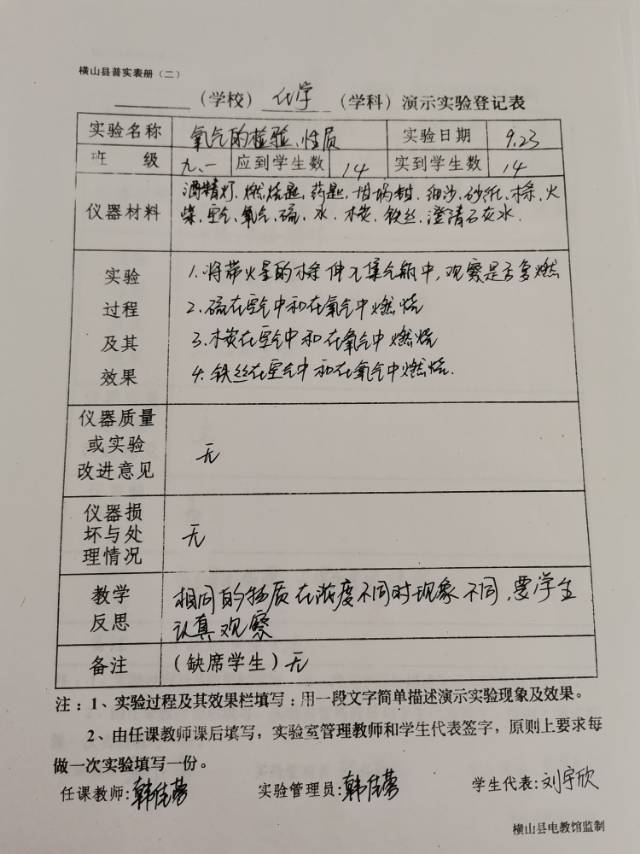 横山县普实表册（二）
（学校） 化学 （学科）演示实验登记表
实验名称 氧气的检验、性质 实验日期 9.23
班 级 九、一 应到学生数 14 实到学生数 14
仪器材料 酒精灯、燃烧匙、药匙、坩埚钳、细沙、砂纸、木条、火
柴、空气、氧气、硫、水、木炭、铁丝、澄清石灰水.
实验 1.将带火星的木条伸入集气瓶中,观察是否复燃
过程 2.硫在空气中和在氧气中燃烧
及其 3.木炭在空气中和在氧气中燃烧
效果 4.铁丝在空气中和在氧气中燃烧.
仪器质量
或实验 无
改进意见
仪器损
坏与处 无
理情况
教学 相同的物质在浓度不同时现象不同,要学生
反思 认真观察
备注 （缺席学生）无
注：1、实验过程及其效果栏填写：用一段文字简单描述演示实验现象及效果。
2、由任课教师课后填写，实验室管理教师和学生代表签字，原则上要求每
做一次实验填写一份。
任课教师:韩佳蓉 实验管理员:韩佳蓉 学生代表:刘宇欣
横山县电教馆监制